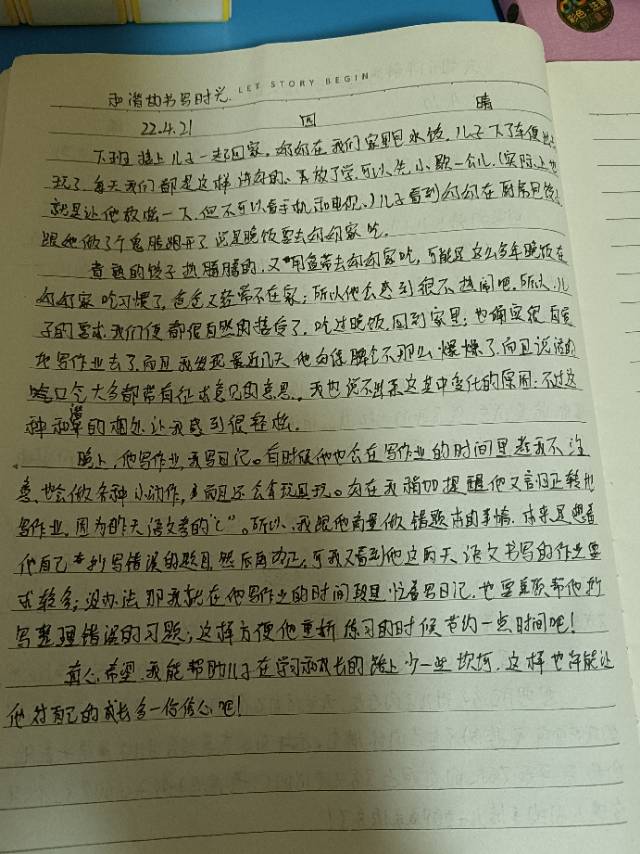 彩色
LET STORY BEGIN
和谐的书写时光
22.4.21 四 晴
下班接上儿子一起回家,奶奶在我们家里包水饺,儿子下了车便出去
玩了,每天我们都是这样,放了学,可以先小歇一会儿,(实际上也
就是让他放松一下,但不可以看手机和电视。)儿子看到奶奶在厨房包饺子
跟她做了个鬼脸跑开了,说是晚饭要去奶奶家吃。
煮熟的饺子热腾腾的,又带去奶奶家吃,可能是这么多年晚饭在
奶奶家吃习惯了,爸爸又经常不在家;所以他会感到很不热闹吧,所以,儿
子的要求,我们便都很自然的接受了,吃过晚饭,回到家里;他确实很自觉
地写作业去了,而且我发现最近几天他的脾气不那么爆燥了,而且说话的
口气大多都带有征求意见的意思,我也说不出来这其中变化的原因;不过这
种和谐的相处让我感到很轻松。
晚上,他写作业,我写日记。有时候他也会在写作业的时间里趁我不注
意,也会做各种小动作,而且还会有玩具玩。好在我稍加提醒他又言归正转地
写作业,因为昨天语文考的“C”。所以,我跟他商量做错题本的事情,本来是想着
他自己抄写错误的题目,然后再改正,可我又看到他这两天语文书写的作业要
求较多;没办法,那我就在他写作业的时间段里,忙着写日记,也要兼顾帮他抄
写整理错误的习题;这样方便他重新练习的时候节约一点时间吧!
真心希望,我能帮助儿子在学习和成长的路上少一些坎坷,这样也许能让
他对自己的成长多一份信心吧!